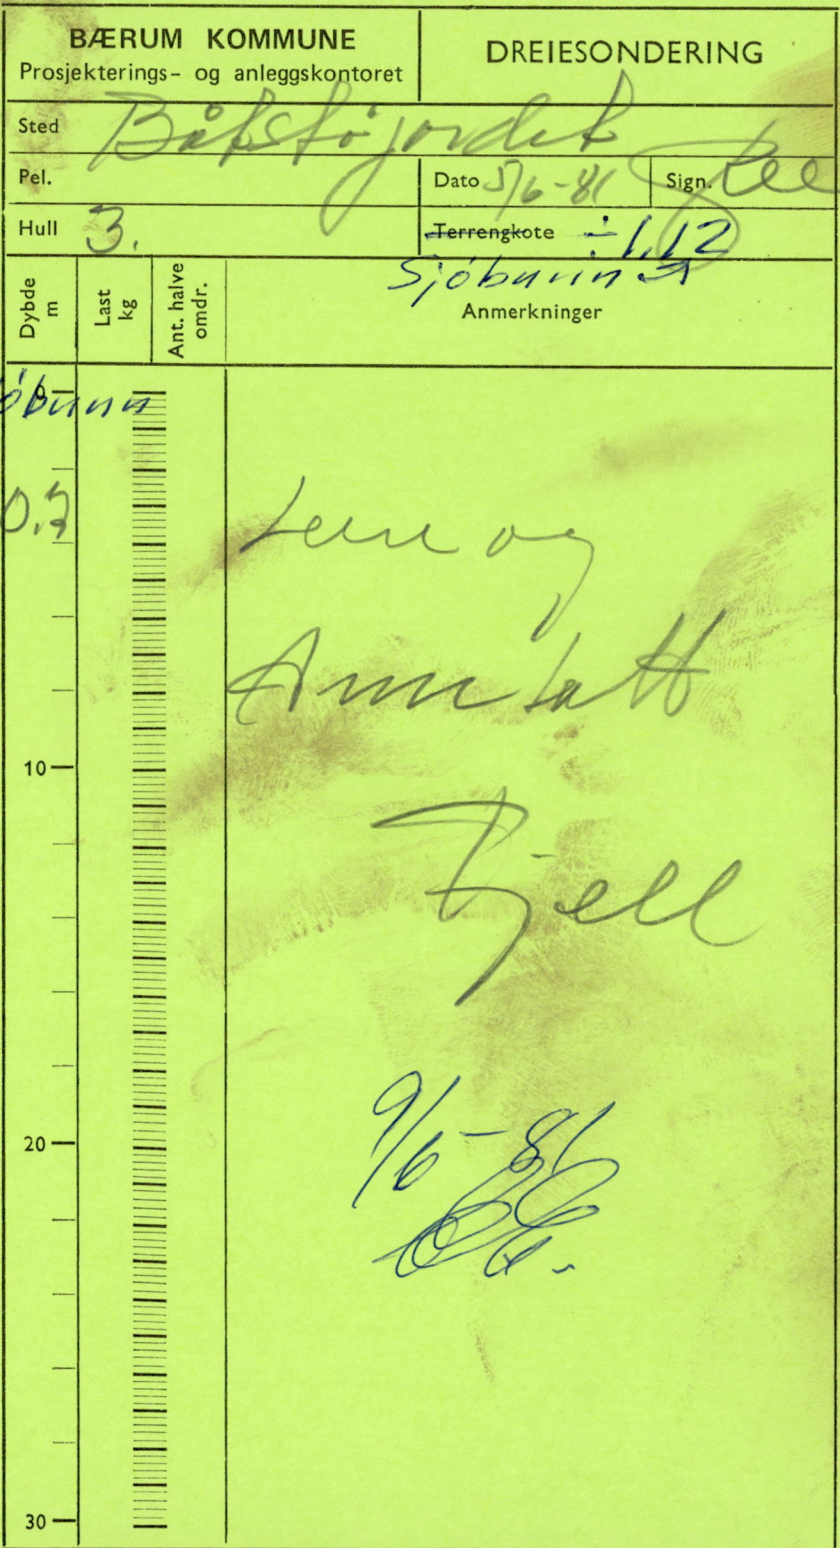 BÆRUM KOMMUNE
Prosjekterings- og anleggskontoret
DREIESONDERING
Sted Båtstøjordet
Pel.
Dato 5/6-81
Sign.
Hull 3.
Terrengkote ÷1,12
Sjöbunn
Dybde m
Last kg
Ant. halve omdr.
Anmerkninger
0
öbunn
0.7
og
Antatt
Fjell
10
9/6-81
20
30